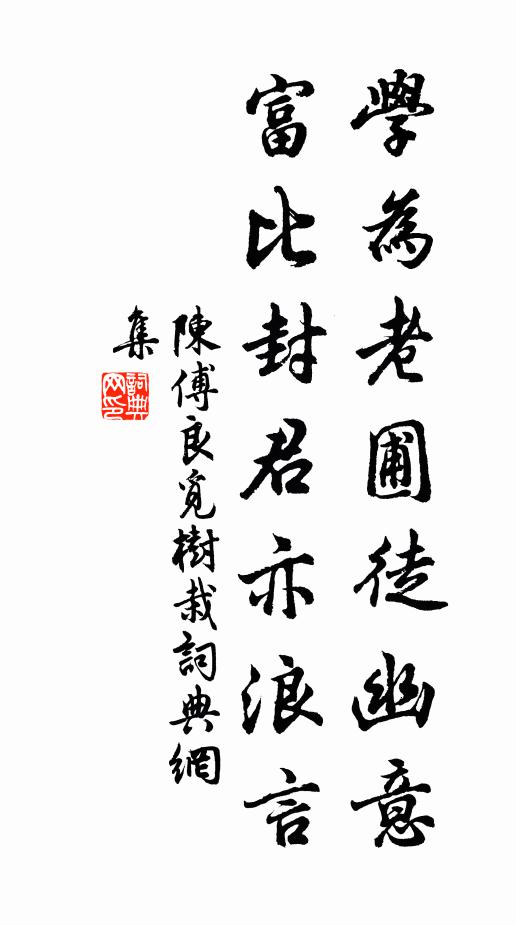 學為老圃徒幽意
富比封君亦浪言
陳傅良覓樹栽詞典網
集
詞典
网印